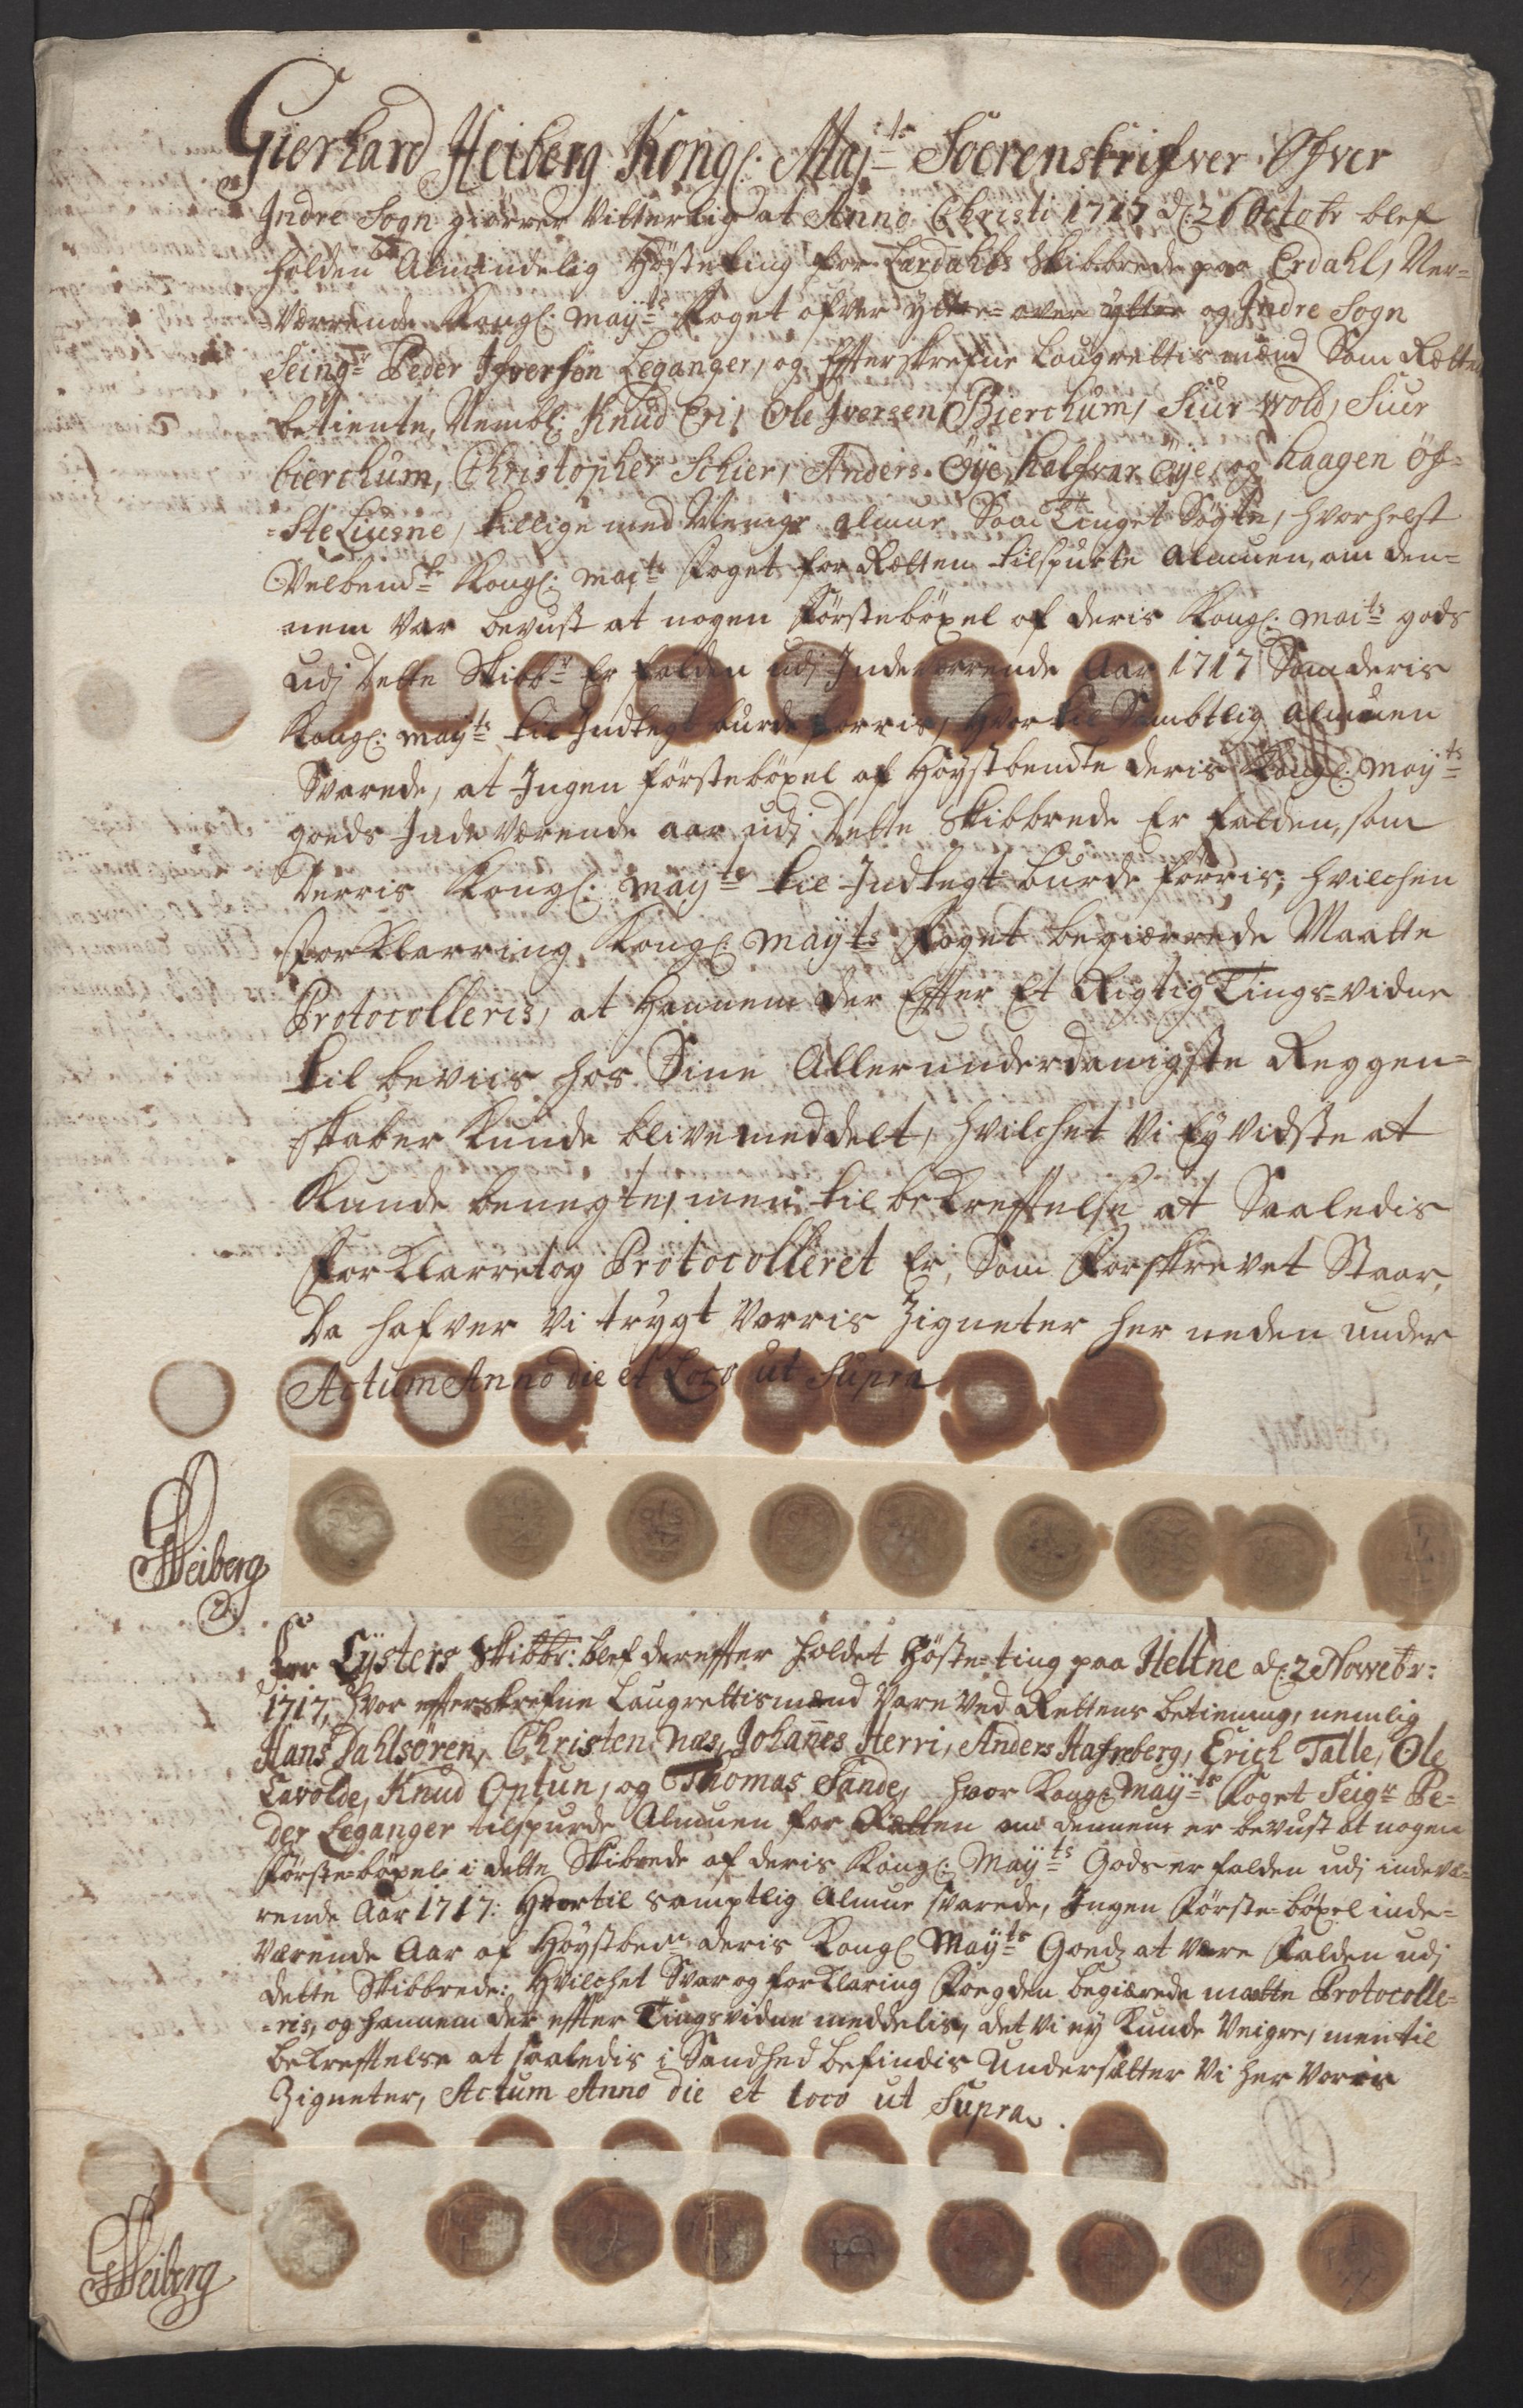 Gierhard Heiberg Kongl: Maj:ts Soerenskrifver Ofver
Indre Sogn giørrer Vitterlig at Anno Christi 1717 d: 26 Octobr blef
holden Almindelig Høste ting for Lærdahls Skibbrede paa Erdahl, Ner=
Værrende Kongl: Maÿ:ts Foget ofver ytter og Indre Sogn
Seing:r Peder Ifversøn Leganger, og Effterskrefne Laugrettismænd Som Rætten
betiente, Nembl: Knud Eri, Ole Iversen Bierchum, Siur Wold, Siur
bierchum, Christopher Schier, Anders Øÿe, halfvar Øÿe, og haagen Öf=
=ste Liusne, tillige med Menige Almue Som Tinget Søgte, hvorhelst
Velbem:te Kongl: Maj:ts Foget for Rætten tilspurte Almuen, om den=
nem var bevust at nogen Förstebögel af deris Kongl: Mai:ts gods
udj dette Skibb:r Er falden udj Indeværrende Aar 1717 Som deris
Kongl: Maÿ:ts til Indtegt burde førris, hvortil Sambtlig Almuen
Svarede, at Ingen förstebøxel af Høystbemte deris Kongl: Maÿ:ts
goeds Inde Værende aar udj dette Skibbrede Er falden, som
Derris Kongl: Maÿts til Indtegt burde førris, hvilchen
Forklarring Kongl: Maÿts Foget begiærrede Maatte
Protocolleris, at hannem der Efter Et Rigtig Tings=vidne
til beviis hos Sine Allerunderdanigste Reggen=
skaber kunde blive meddelt, hvilchet Vi Eÿ vidste at
Kunde benegte, men til bekrefftelse at Saaledis
Forklarret og Protocolleret Er, Som Forskrevet Staar,
Da hafver Vi trygt Vorris Zigneter her neden under
Actum Anno die et Loco ut Supra
GHeiberg
For Lÿsters Skibbr: blef dereffter holdet Höste=ting paa Heltne d: 2 Novebr:
1717, hvor effterskrefne Laugrettismænd Vare Ved Rettens betiening, nemlig
Hans Dahlsøren, Christen Næs, Johannes Herri, Anders Hafreberg, Erich Talle, Ole
Lavolde, Knud Optun, og Thomas Sande, hvor Kongl: Maÿ:ts Foget Seig:r Pe=
der Leganger tilspurde Almuen for Rætten om dennem er bevust at nogen
förste=böxel i dette Skibrede af deris Kongl: Maÿ:ts Gods er falden udj indevæ=
rende Aar 1717: Hvortil samptlig Almue svarede, Ingen förste=böxel inde=
Værende Aar af Höystbem:te deris Kongl Maÿ:ts Goeds at være falden udj
dette Skibbrede: Hvilchet Svar og forklaring Foegden begiærede maatte Protocolle=
=ris, og hannem der effter Tingsvidne meddelis, det vi eÿ kunde Veigre, men til
bekrefftelse at saaledis i Sandhed befindis Undersætter Vi her Voris
Zigneter, Actum Anno die et loco ut Supra.
GHeiberg